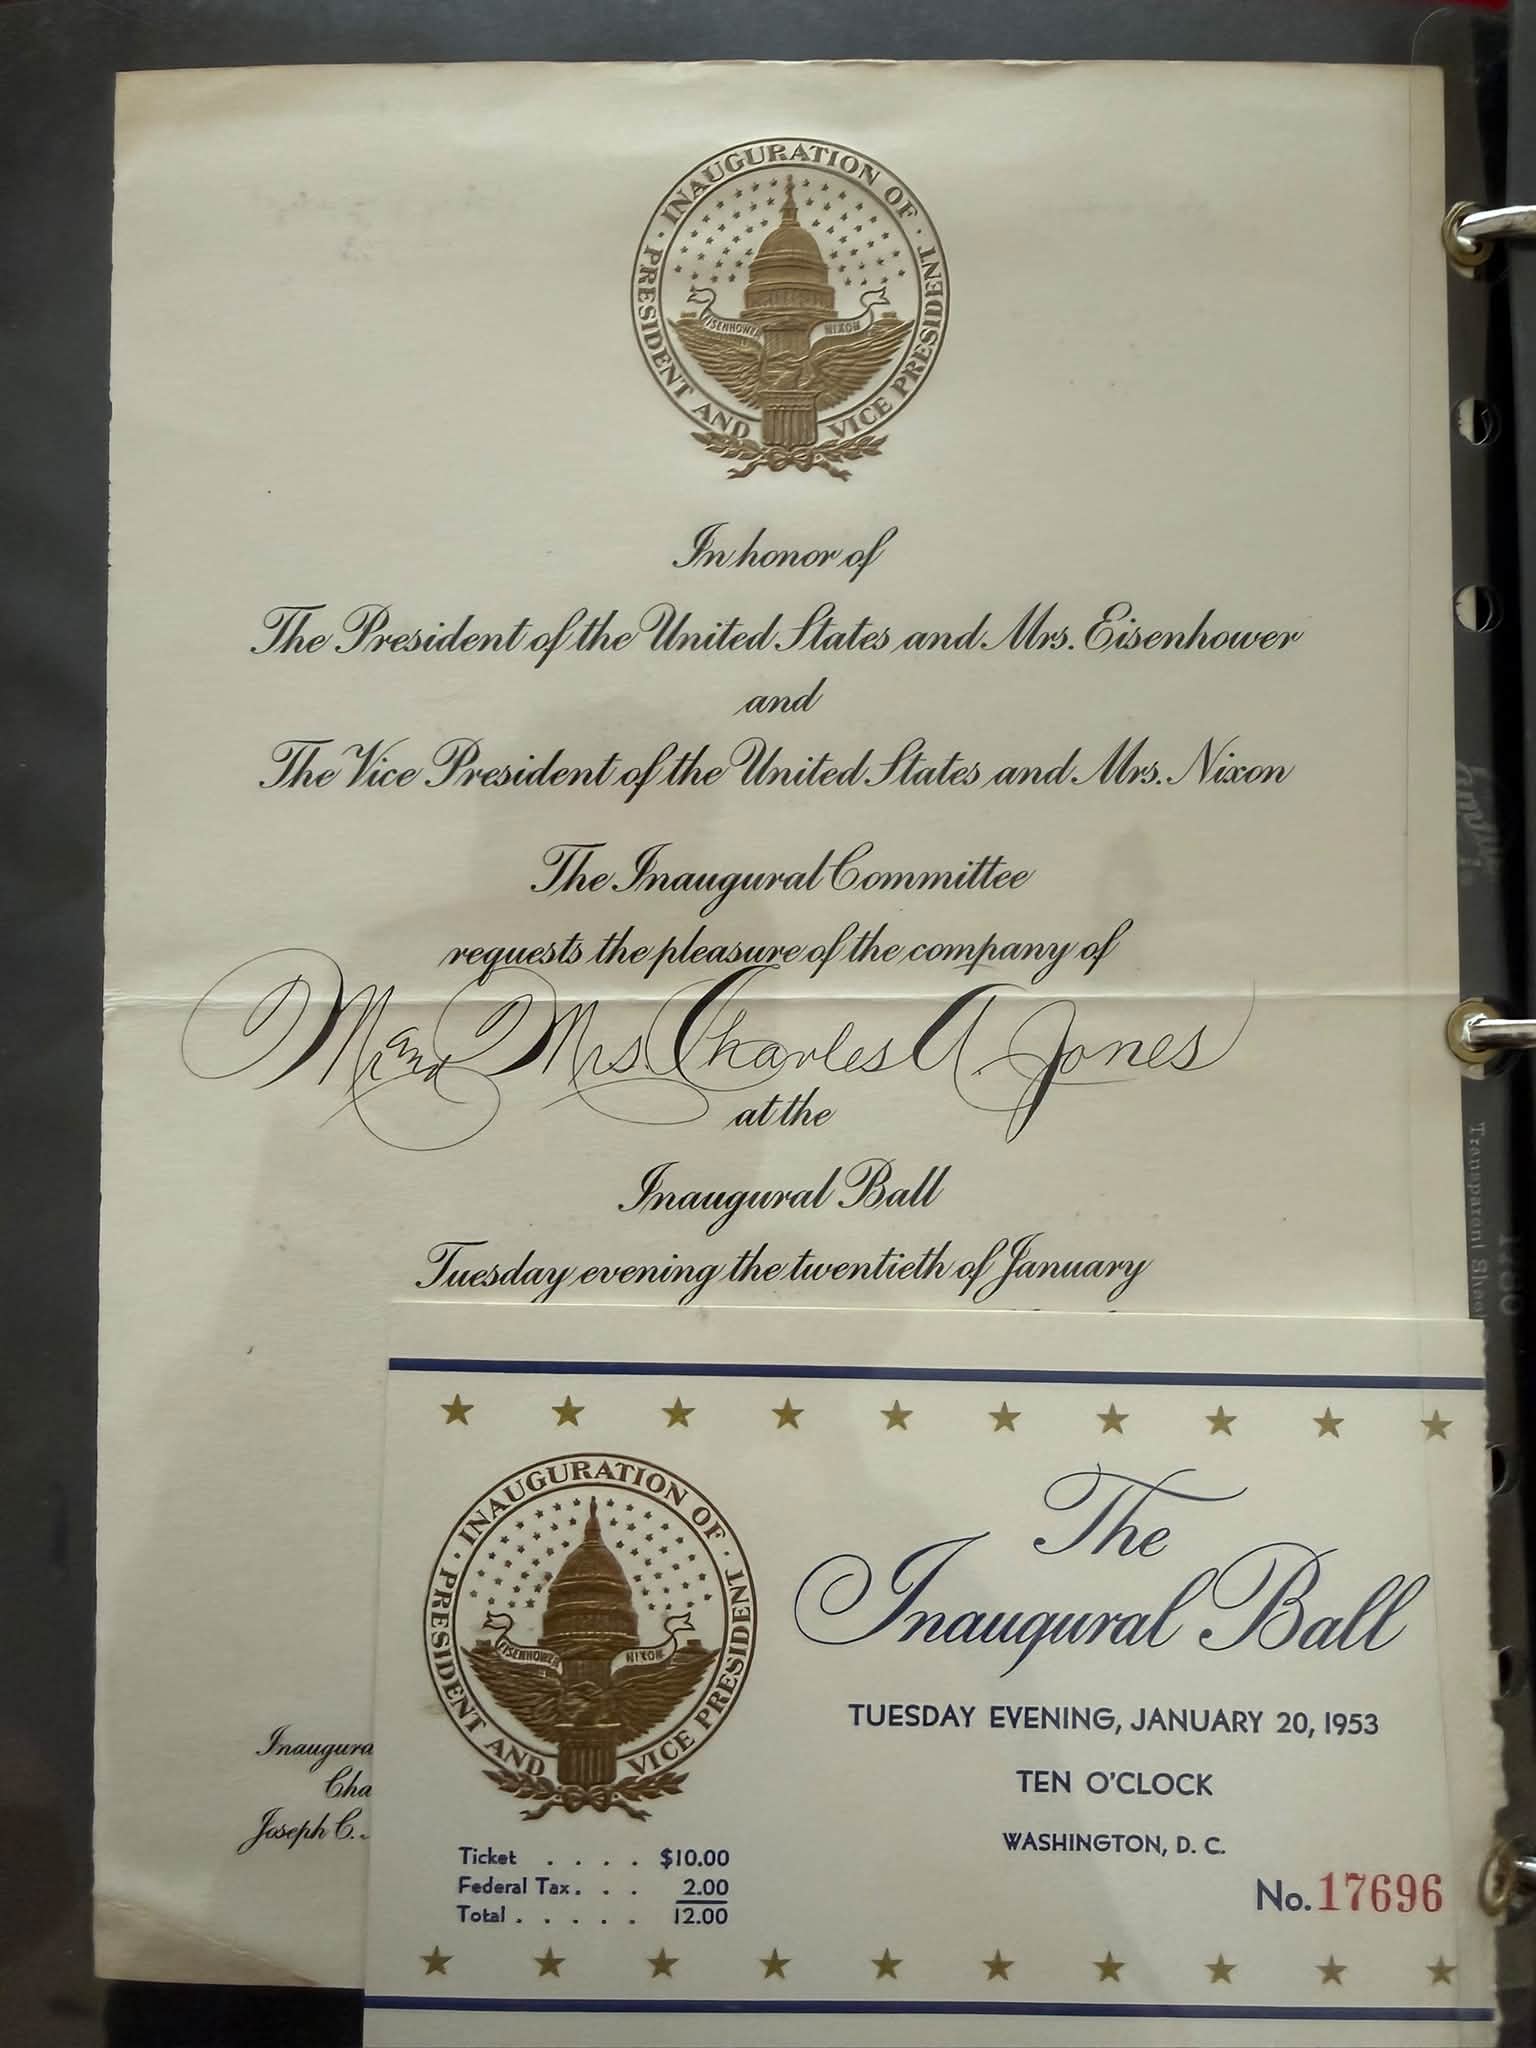 INAUGURATION OF
PRESIDENT AND VICE PRESIDENT
EISENHOWER NIXON
In honor of
The President of the United States and Mrs. Eisenhower
and
The Vice President of the United States and Mrs. Nixon
The Inaugural Committee
requests the pleasure of the company of
Mr. and Mrs. Charles A. Jones
at the
Inaugural Ball
Tuesday evening the twentieth of January
Inaugura
Cha
Joseph C.
INAUGURATION OF
PRESIDENT AND VICE PRESIDENT
EISENHOWER NIXON
The
Inaugural Ball
TUESDAY EVENING, JANUARY 20, 1953
TEN O'CLOCK
WASHINGTON, D. C.
Ticket . . . . $10.00
Federal Tax. . . 2.00
Total . . . . . 12.00
No. 17696
Transparent